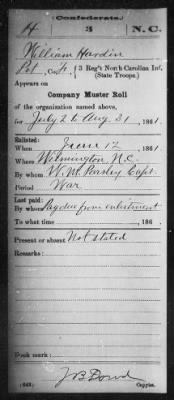 Confederate.
H 28 N. C.
William Hardin
Pvt, Co. H, 28 Reg't North Carolina Inf.
(State Troops.)
Appears on
Company Muster Roll
of the organization named above,
for July 2 to Aug 31, 1861.
Enlisted:
When June 12, 1861.
Where Wilmington, N.C.
By whom W. M. Parsley Capt.
Period War
Last paid:
By whom Pay due from enlistment
To what time , 186 .
Present or absent Not stated
Remarks:
Book mark:
J B Dowd
Copyist.